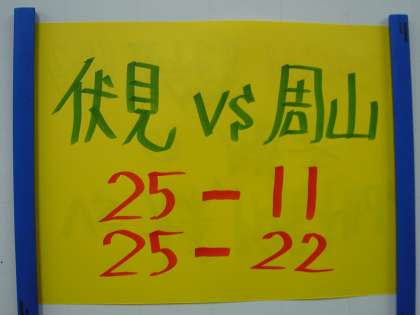 伏見 VS 周山
25-11
25-22